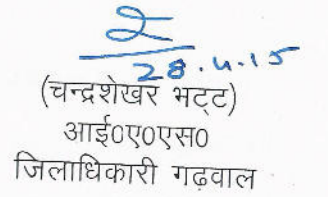 28.4.15
(चन्द्रशेखर भट्ट)
आई0ए0एस0
जिलाधिकारी गढ़वाल